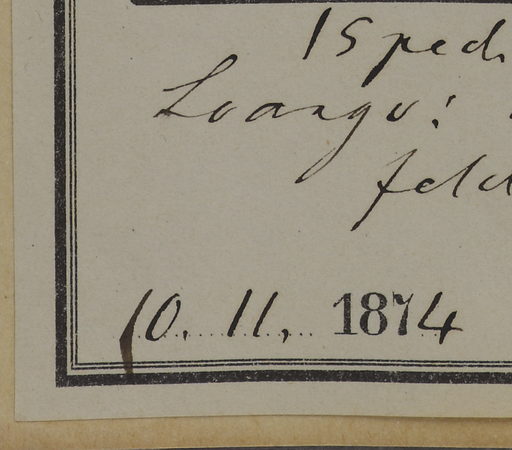 15 ped.
Loango:
feld
10. 11. 1874